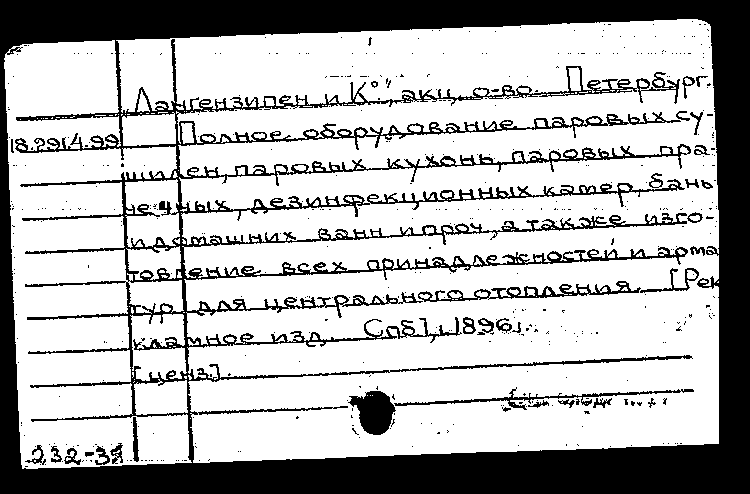 „Лангензипен и К°", акц. о-во. Петербург.
18.291.4.99 Полное оборудование паровых су-
шилен, паровых кухонь, паровых пра-
чечных, дезинфекционных камер, бань
и домашних ванн и проч., а также изго-
товление всех принадлежностей и арма
тур для центрального отопления. [Рек
кламное изд. Спб], 1896.
[ценз].
232-39